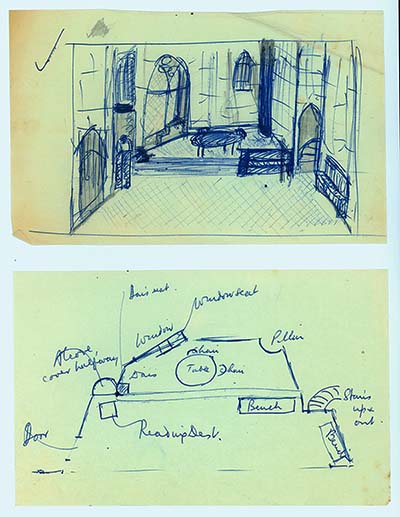 Dais seat
Window seat
Window
Pillar
Alcove
cover halfway
Chair
Table
Chair
Dais
Stairs
up &
out.
Bench
Door
Reading Desk.
Bench